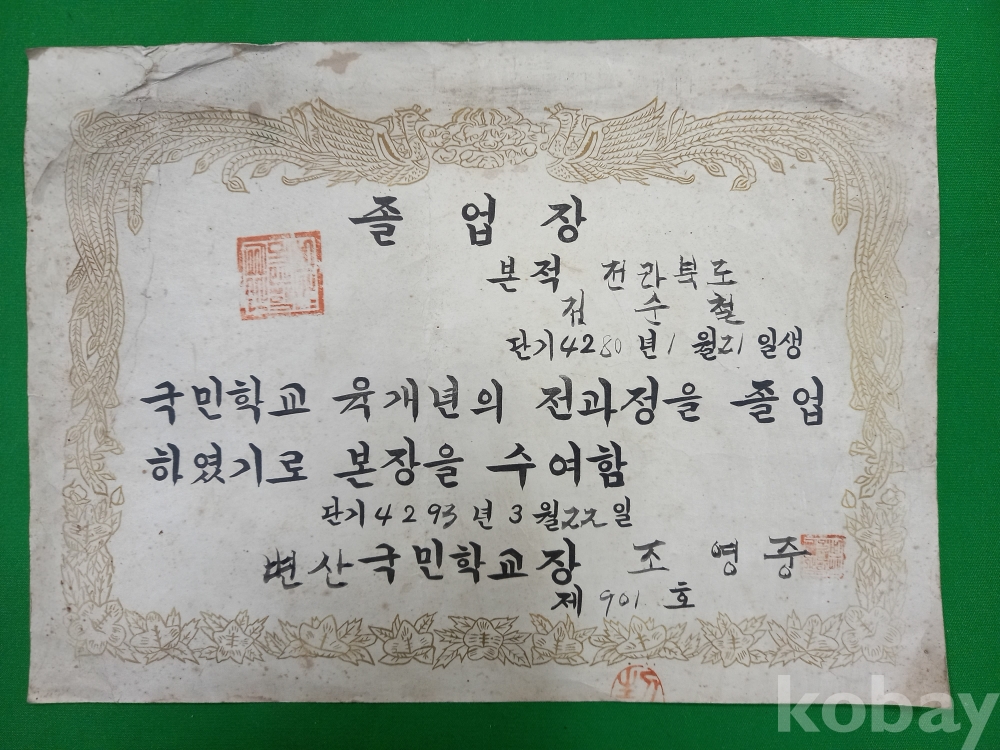 졸업장
본적 전라북도
김순철
단기4280년1월21일생
국민학교 육개년의 전과정을 졸업
하였기로 본장을 수여함
단기4293년3월22일
변산국민학교장 조영중
제901호
kobay